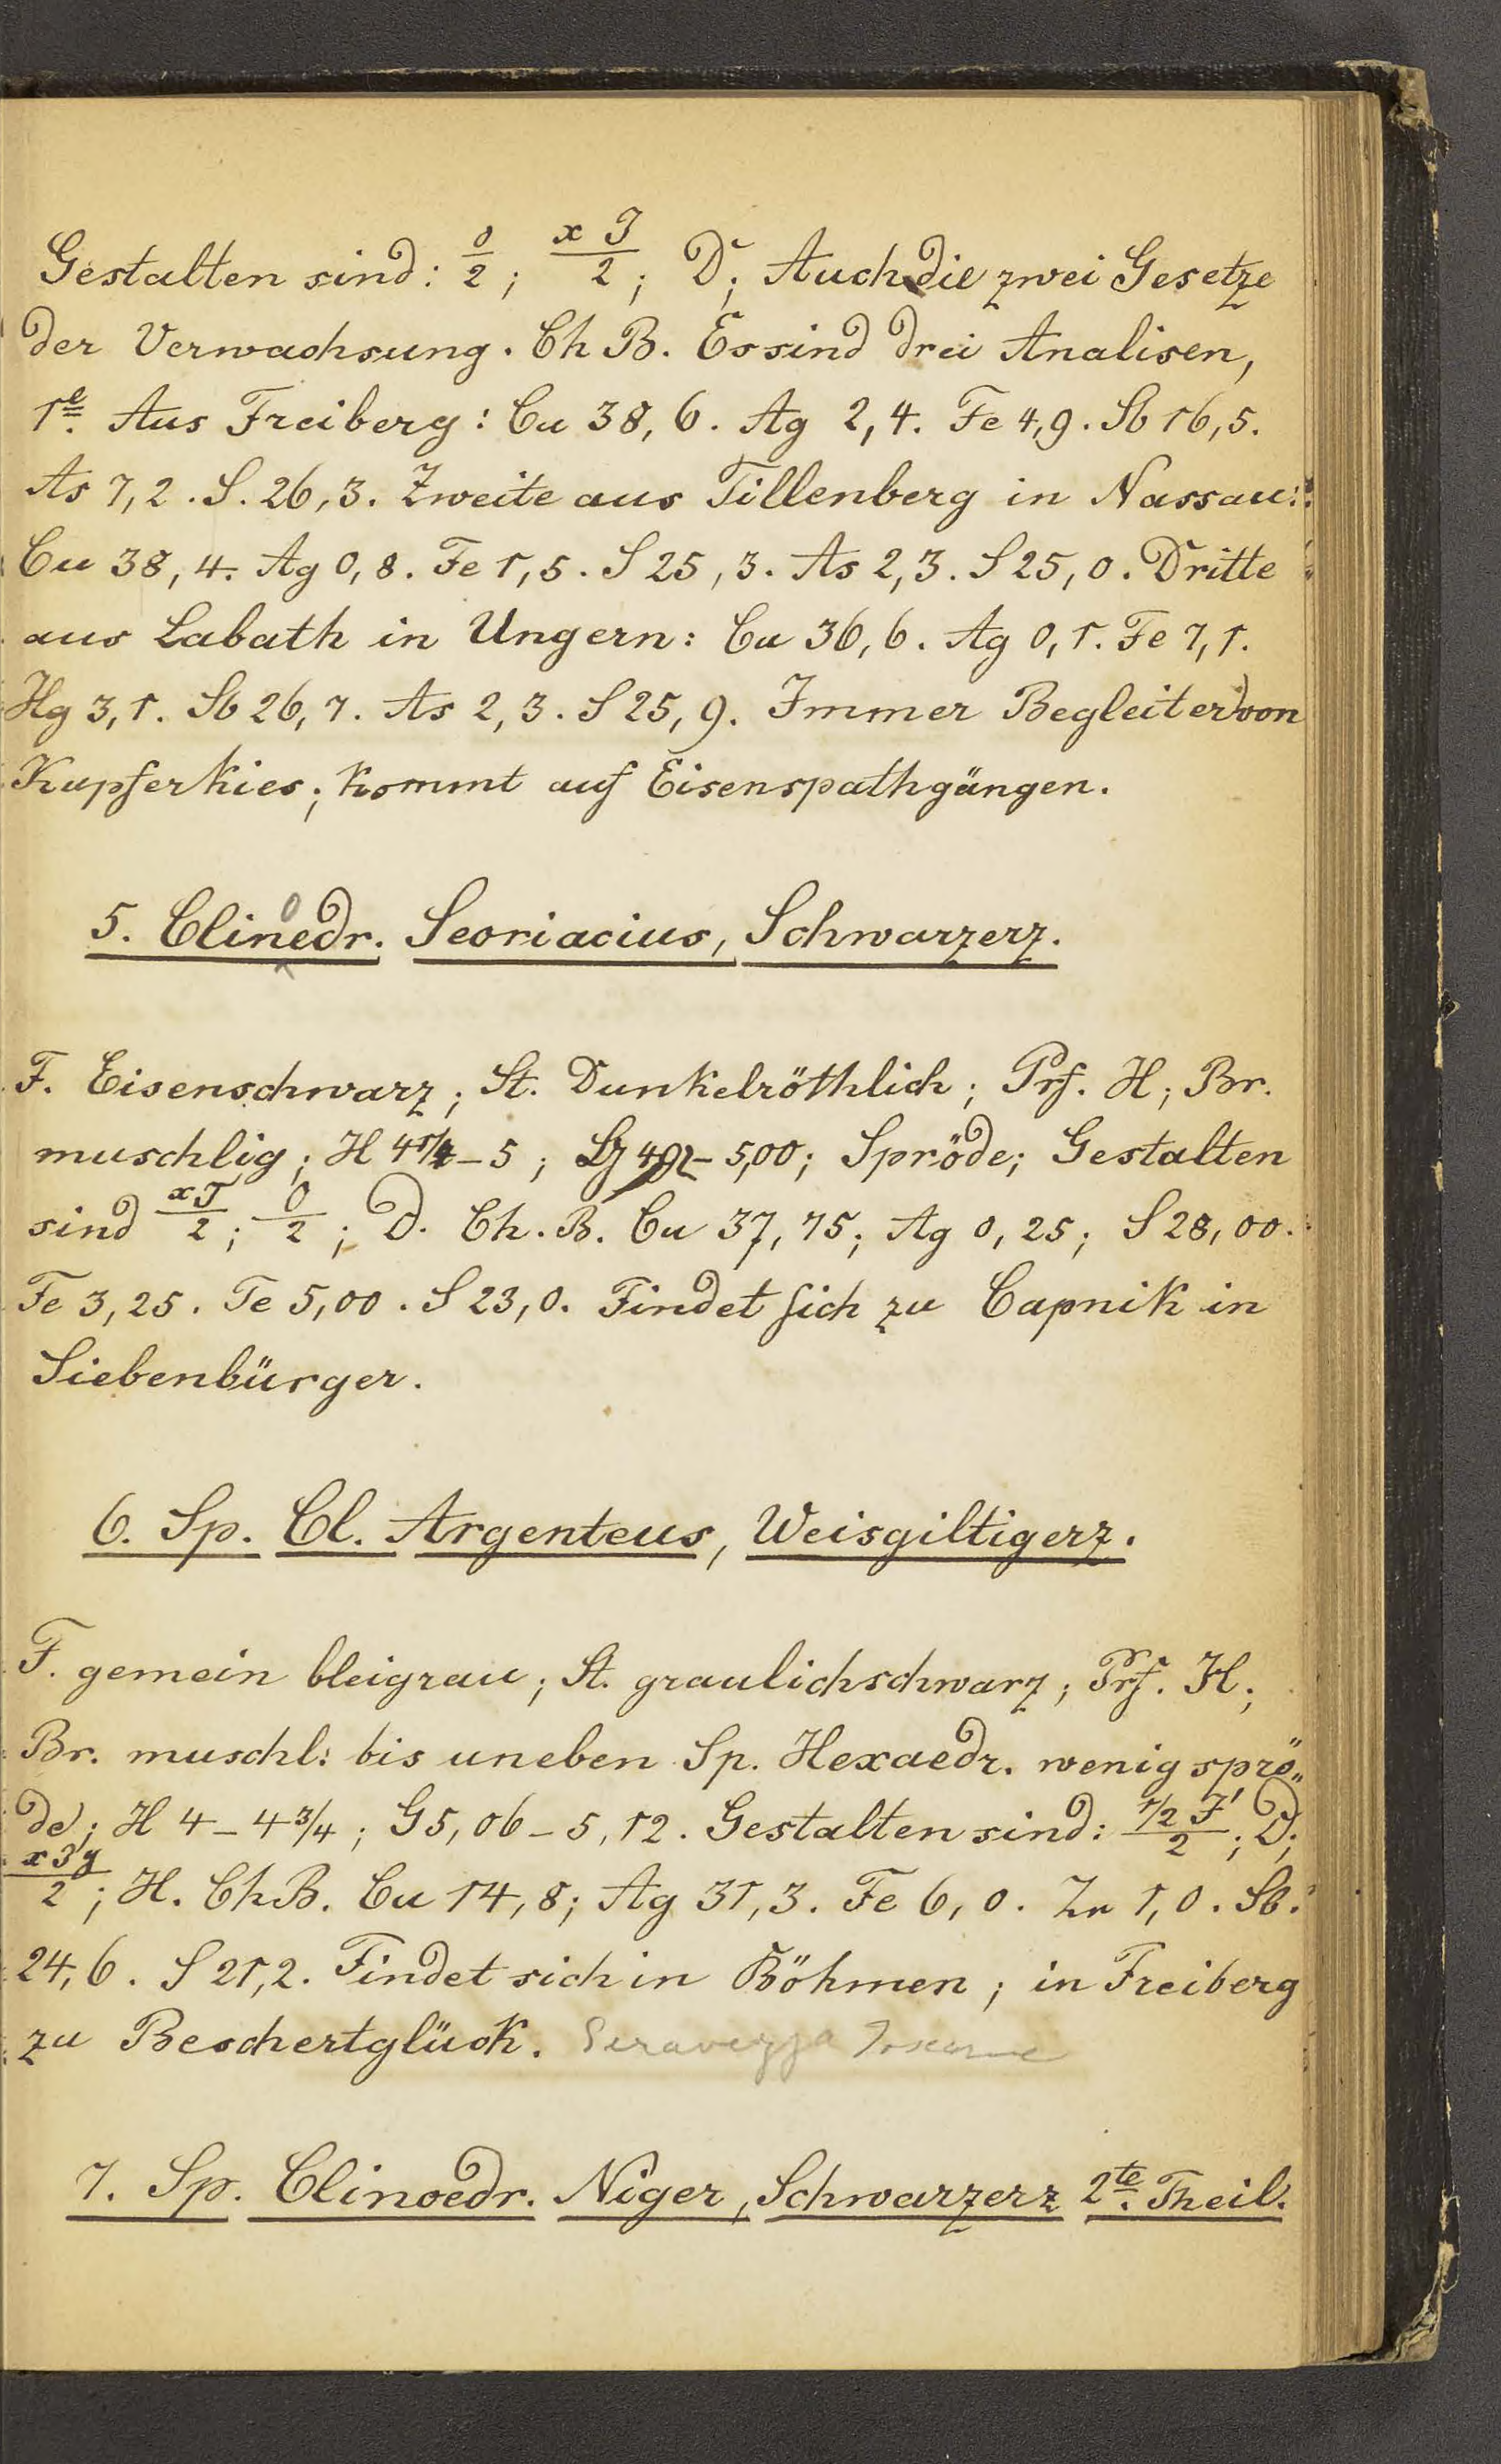 Gestalten sind: 0/2; x J/2; D; Auch die zwei Gesetze
der Verwachsung. Ch B. Es sind drei Analisen,
1e. Aus Freiberg: Cu 38,6. Ag 2,4. Fe 4,9. Sb 16,5.
As 7,2. S. 26,3. Zweite aus Tillenberg in Nassau:
Cu 38,4. Ag 0,8. Fe 1,5. S 25,3. As 2,3. S 25,0. Dritte
aus Labath in Ungern: Cu 36,6. Ag 0,1. Fe 7,1.
Hg 3,1. Sb 26,7. As 2,3. S 25,9. Immer Begleiter von
Kupferkies; kommt auf Eisenspathgängen.
5. Clinoedr. Seoriacius, Schwarzerz.
F. Eisenschwarz; St. Dunkelröthlich; Prf. H; Br.
muschlig; H 4 1/4 - 5; G 4,92 - 5,00; Spröde; Gestalten
sind xJ/2; 0/2; D. Ch. B. Cu 37,75; Ag 0,25; S 28,00.
Fe 3,25. Te 5,00. S 23,0. Findet sich zu Capnik in
Siebenbürger.
6. Sp. Cl. Argenteus, Weisgiltigerz.
F. gemein bleigrau; St. graulichschwarz; Prf. H;
Br. muschl: bis uneben Sp. Hexaedr. wenig sprö„
de; H 4 - 4 3/4; G 5,06 - 5,12. Gestalten sind: 1/2 J'/2; D;
x J'y/2; H. Ch B. Cu 14,8; Ag 31,3. Fe 6,0. Zn 1,0. Sb.
24,6. S 21,2. Findet sich in Böhmen; in Freiberg
zu Beschertglück. Seravezza Toscana
7. Sp. Clinoedr. Niger, Schwarzerz 2te. Theil.